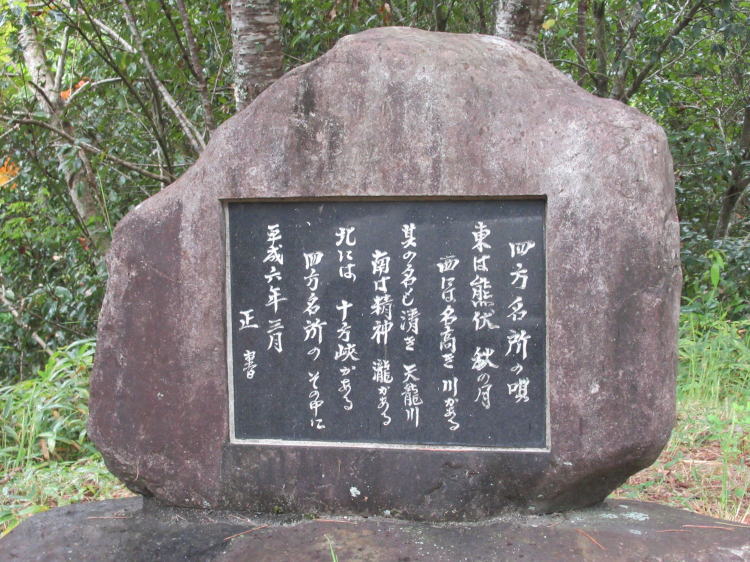 四方名所の唄
東は熊伏 秋の月
西には名高き 川がある
其の名も清き 天龍川
南は精神 瀧がある
北には 十方峡がある
四方名所の その中に
平成六年 三月
正 書